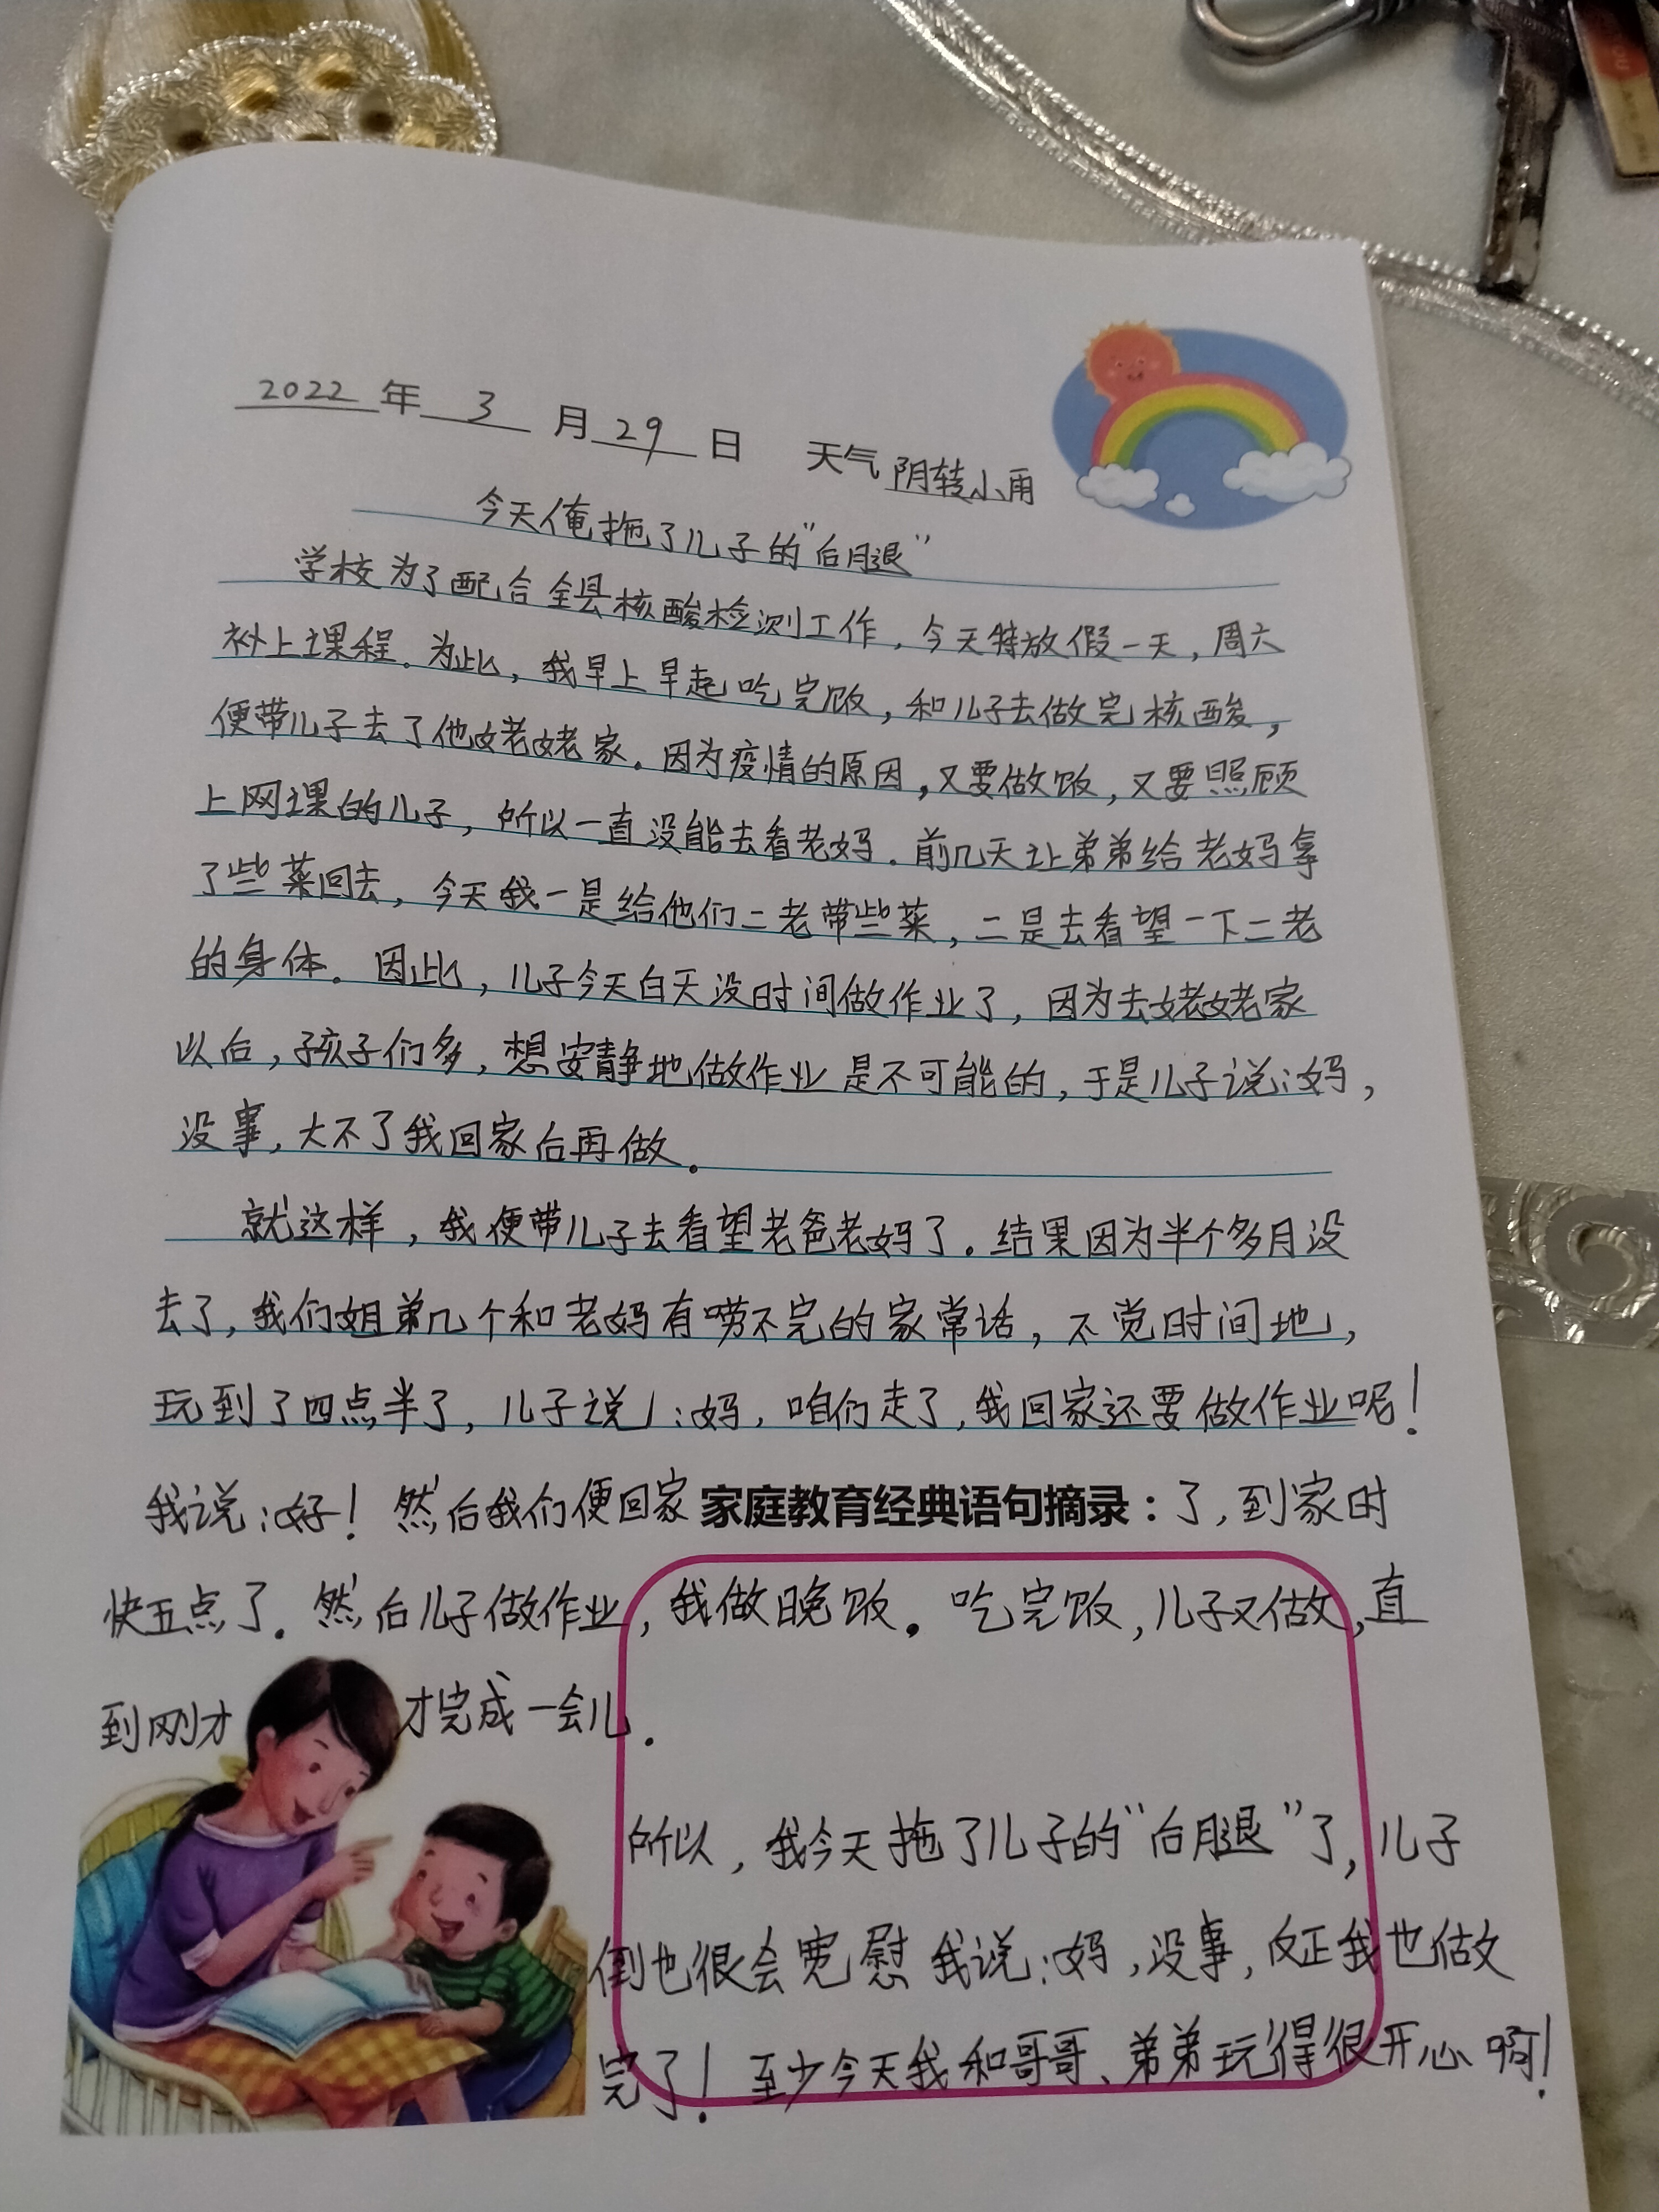 2022年3月29日 天气 阴转小雨
今天俺拖了儿子的“后腿”
学校为了配合全县核酸检测工作,今天特放假一天,周六
补上课程。为此,我早上早起吃完饭,和儿子去做完核酸,
便带儿子去了他姥姥家。因为疫情的原因,又要做饭,又要照顾
上网课的儿子,所以一直没能去看老妈。前几天让弟弟给老妈拿
了些菜回去,今天我一是给他们二老带些菜,二是去看望一下二老
的身体。因此,儿子今天白天没时间做作业了,因为去姥姥家
以后,孩子们多,想安静地做作业是不可能的,于是儿子说:妈,
没事,大不了我回家后再做。
就这样,我便带儿子去看望老爸老妈了。结果因为半个多月没
去了,我们姐弟几个和老妈有唠不完的家常话,不觉时间地,
玩到了四点半了,儿子说:妈,咱们走了,我回家还要做作业呢!
我说:好!然后我们便回家 家庭教育经典语句摘录:了,到家时
快五点了。然后儿子做作业,我做晚饭。吃完饭,儿子又做,直
到刚才 才完成一会儿.
所以,我今天拖了儿子的“后腿”了,儿子
倒也很会宽慰我说:妈,没事,反正我也做
完了!至少今天我和哥哥、弟弟玩得很开心啊!